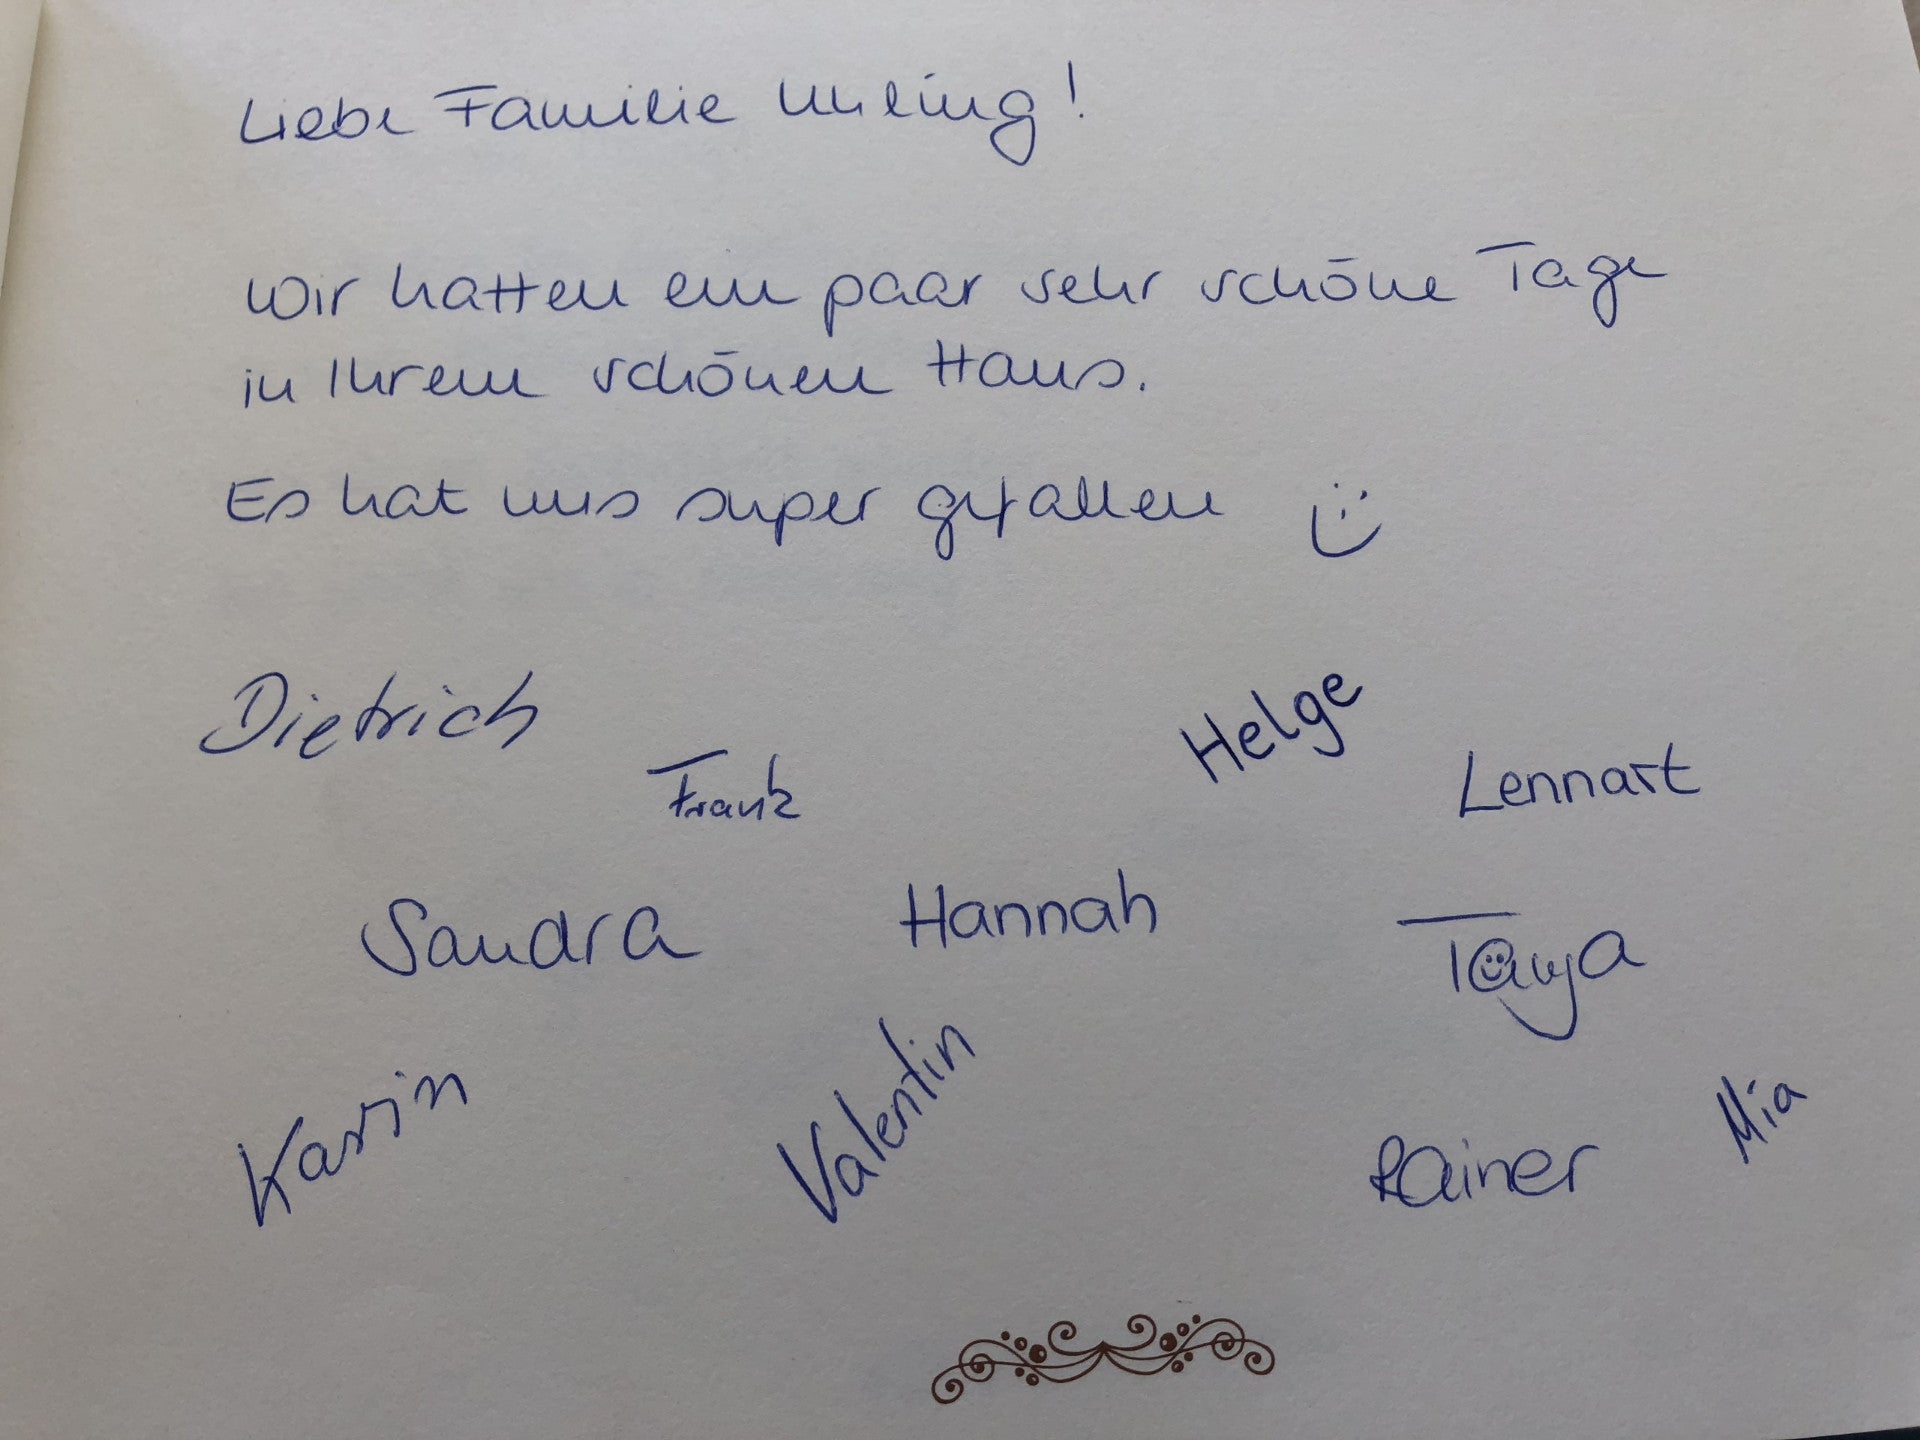 Liebe Familie
Wir hatten ein paar sehr schöne Tage
in Ihrem schönen Haus.
Es hat uns super gefallen
Dietrich
Frank
Helge
Lennart
Sandra
Hannah
Tanja
Karin
Valentin
Rainer
Mia